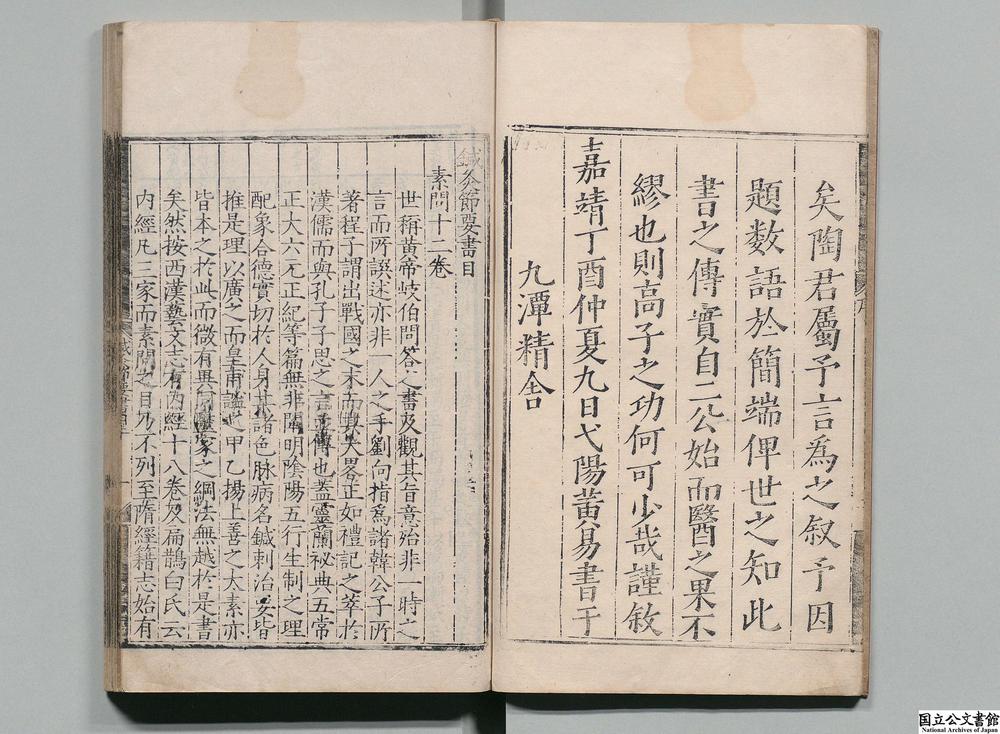 矣陶君屬予言為之叙予因
題數語於簡端俾世之知此
書之傳實自二公始而醫之果不
繆也則高子之功何可少哉謹敘
嘉靖丁酉仲夏九日弋陽黃易書于
九潭精舍
鍼灸節要書目
素問十二卷
世稱黃帝岐伯問答之書及觀其旨意殆非一時之
言而所譔述亦非一人之手劉向指為諸韓公子所
著程子謂出戰國之末而其大畧正如禮記之萃於
漢儒而與孔子子思之言並傳也蓋靈蘭祕典五常
正大六元正紀等篇無非闡明陰陽五行生制之理
配象合德實切於人身其諸色脉病名鍼刺治要皆
推是理以廣之而皇甫謐之甲乙揚上善之太素亦
皆本之於此而微有異同醫家之綱法無越於是書
矣然按西漢藝文志有內經十八卷及扁鵲白氏云
內經凡三家而素問之目乃不列至隋經籍志始有
国立公文書館
National Archives of Japan